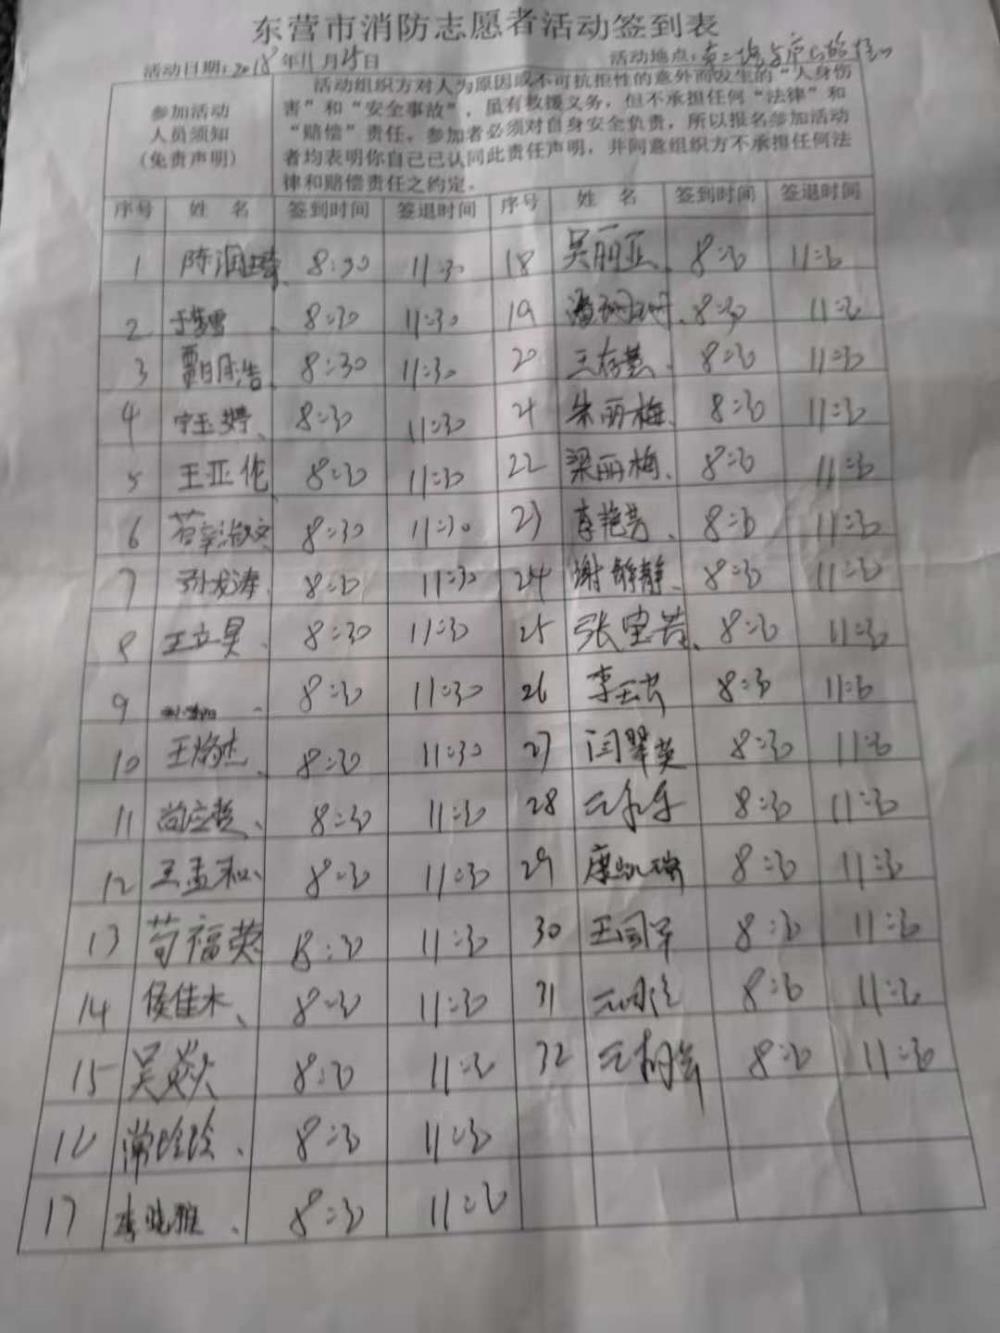 东营市消防志愿者活动签到表
活动日期：2018年11月25日 活动地点：
参加活动
人员须知
（免责声明）
活动组织方对人为原因或不可抗拒性的意外而发生的“人身伤
害”和“安全事故”，虽有救援义务，但不承担任何“法律”和
“赔偿”责任，参加者必须对自身安全负责，所以报名参加活动
者均表明你自己已认同此责任声明，并同意组织方不承担任何法
律和赔偿责任之约定。
序号 姓 名 签到时间 签退时间 序号 姓 名 签到时间 签退时间
1 8:30 11:30 18 吴丽亚 8:30 11:30
2 8:30 11:30 19 8:30 11:30
3 8:30 11:30 20 8:30 11:30
4 8:30 11:30 21 朱丽梅 8:30 11:30
5 王亚伦 8:30 11:30 22 梁丽梅 8:30 11:30
6 8:30 11:30 23 李艳芳 8:30 11:30
7 孙龙涛 8:30 11:30 24 谢静静 8:30 11:30
8 王立昊 8:30 11:30 25 张宝芳 8:30 11:30
9 8:30 11:30 26 8:30 11:30
10 8:30 11:30 27 闫翠英 8:30 11:30
11 8:30 11:30 28 8:30 11:30
12 王孟和 8:30 11:30 29 8:30 11:30
13 苟福英 8:30 11:30 30 8:30 11:30
14 侯佳木 8:30 11:30 31 8:30 11:30
15 8:30 11:30 32 8:30 11:30
16 常玲玲 8:30 11:30
17 李晓雅 8:30 11:30